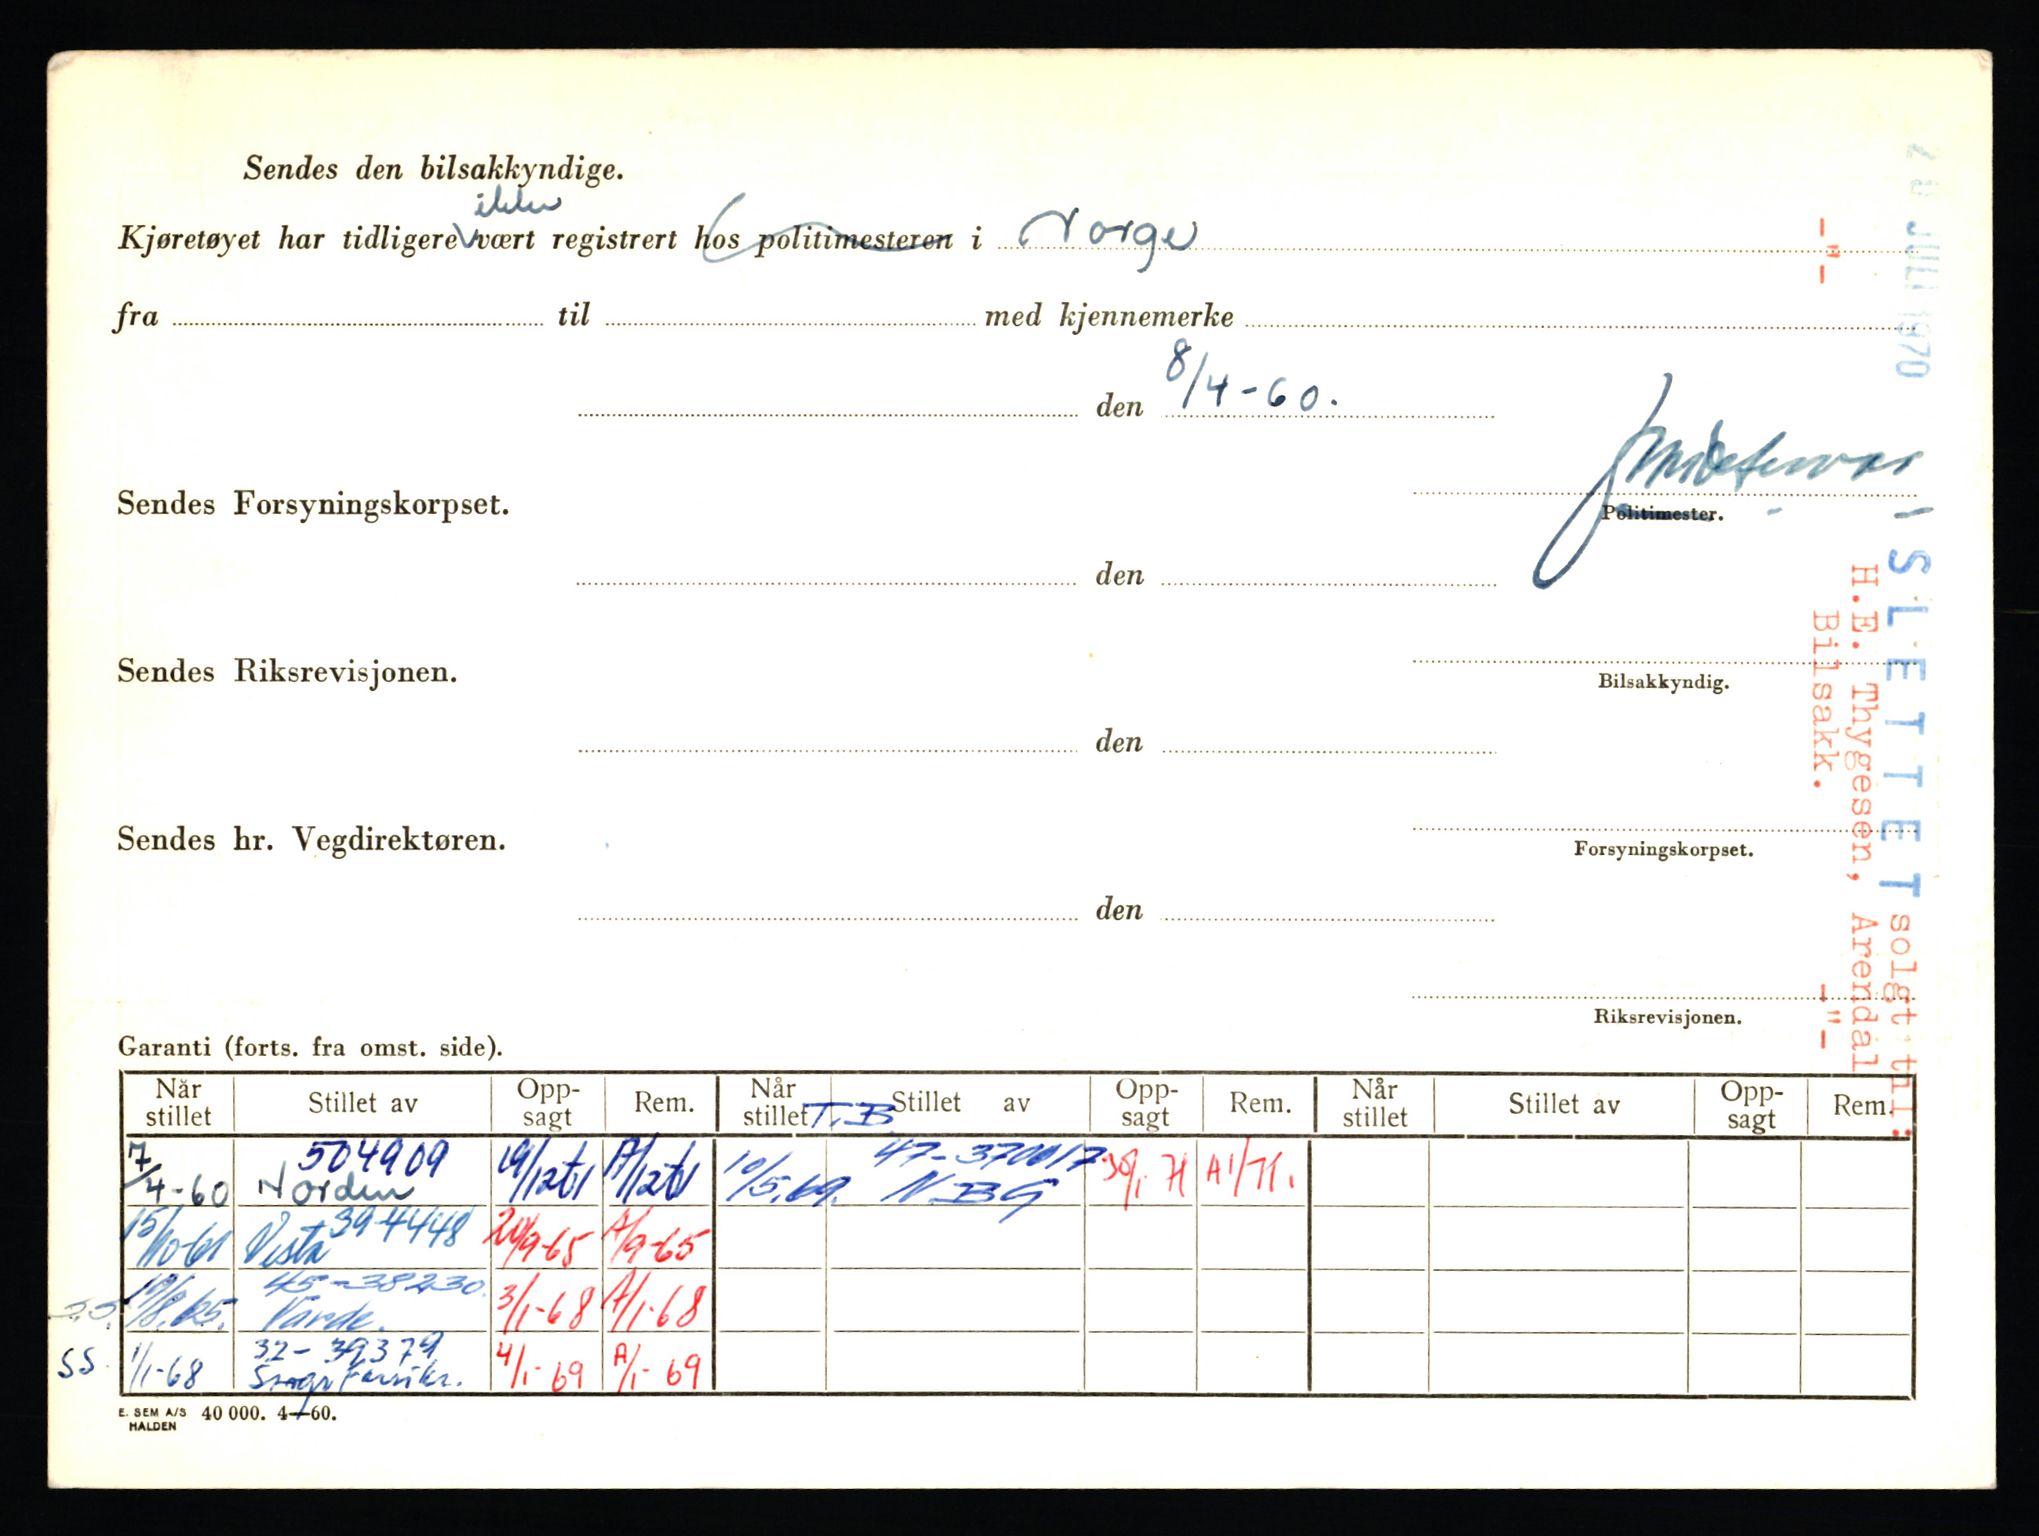 Sendes den bilsakkyndige.
ikke
Kjøretøyet har tidligere vært registrert hos politimesteren i Norge
fra til med kjennemerke
den 8/4-60.
Sendes Forsyningskorpset.
Politimester.
den
Sendes Riksrevisjonen.
Bilsakkyndig.
den
Sendes hr. Vegdirektøren.
Forsyningskorpset.
den
Riksrevisjonen.
Garanti (forts. fra omst. side).
Når stillet Stillet av Opp-sagt Rem. Når stillet Stillet av Opp-sagt Rem. Når stillet Stillet av Opp-sagt Rem.
T.B
7/4-60 504909 Norden 19/12 61 A/12 61 10/5.69. 47-370017 N.B.G 30/1 71 A 1/71.
15/10-61 Vista 394448 24/9-65 A/9-65
45-38230. Varde. 3/1-68 A/1-68
SS 1/1-68 32-39379 4/1-69 A/1-69
E. SEM A/S HALDEN 40 000. 4-60.
28 JULI 1970
SLETTET solgt til:
H.E. Thygesen, Arendal
Bilsakk.
-"-
-"-